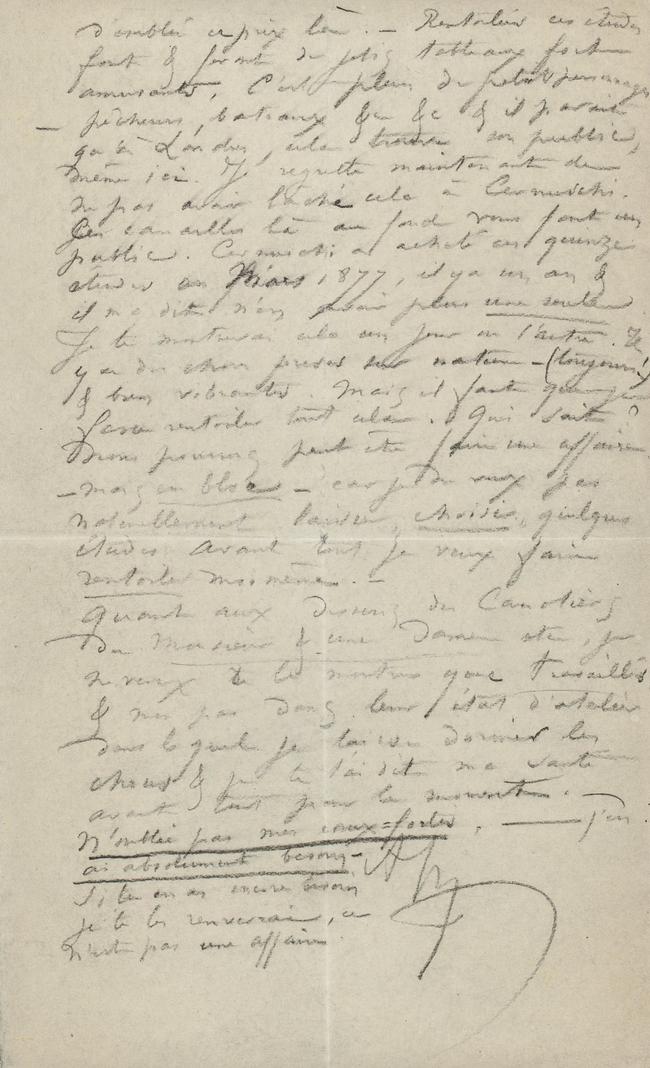 d'emblée ce prix là. — Rentoilées ces études
font & feront de jolis tableaux fort
amusants. C'est plein de petits personnages
— pêcheurs, bateaux &c &c & il paraît
qu'à Londres, cela son public,
même ici. Je regrette maintenant de
ne pas avoir lâché cela à Cernuschi.
Ces canailles là au fond vous font un
public. Cernuschi a acheté ces quinze
études en Mars 1877, il y a un an &
il m'a dit n'en avoir plus une seule
Je te montrerai cela un jour ou l'autre. Il
y a du choses prises sur nature — (toujours!)
& bien vibrantes. Mais il faut que je
fasse rentoiler tout cela. Qui sait?
Nous pourrons peut être faire une affaire
— mais en bloc — car je ne veux pas
naturellement laisser choisir quelques
études avant tout je veux faire
rentoiler moi même. —
Quant aux dessins des Canotiers
du Monsieur & une Dame etc, je
ne veux te les montrer que travaillés
& non pas dans leur état d'atelier
dans lequel je laisse dormir les
choses & je te l'ai dit ma santé
avant tout pour le moment. —
N'oublie pas mes eaux=fortes, — j'en
ai absolument besoin —
Si tu en as encore besoin
je te les renverrai, ce
n'est pas une affaire.